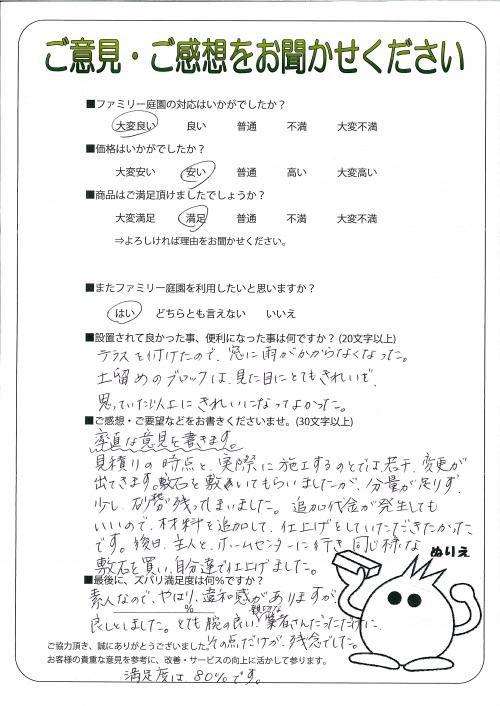 ご意見・ご感想をお聞かせください
■ファミリー庭園の対応はいかがでしたか？
大変良い 良い 普通 不満 大変不満
■価格はいかがでしたか？
大変安い 安い 普通 高い 大変高い
■商品はご満足頂けましたでしょうか？
大変満足 満足 普通 不満 大変不満
⇒よろしければ理由をお聞かせください。
■またファミリー庭園を利用したいと思いますか？
はい どちらとも言えない いいえ
■設置されて良かった事、便利になった事は何ですか？(20文字以上)
テラスを付けたので、窓に雨がかからなくなった。
土留めのブロックは、見た目にとてもきれいで、
思っていた以上にきれいになってよかった。
■ご感想・ご要望などをお書きくださいませ。(30文字以上)
率直な意見を書きます。
見積りの時点と、実際に施工するのとでは若干、変更が
出てきます。敷石を敷いてもらいましたが、分量が足りず、
少し、砂 が残ってしまいました。追加代金が発生しても
いいので、材料を追加して、仕上げをしていただきたかった
です。後日、主人と、ホームセンターに行き同じ様な
敷石を買い、自分達で仕上げました。
ぬりえ
■最後に、ズバリ満足度は何％ですか？
素人なので、やはり、違和感がありますが、
％
良しとしました。とても腕の良い、親切な業者さんだっただけに、
その点だけが、残念でした。
ご協力頂き、誠にありがとうございました。
お客様の貴重な意見を参考に、改善・サービスの向上に活かして参ります。
満足度は80％です。